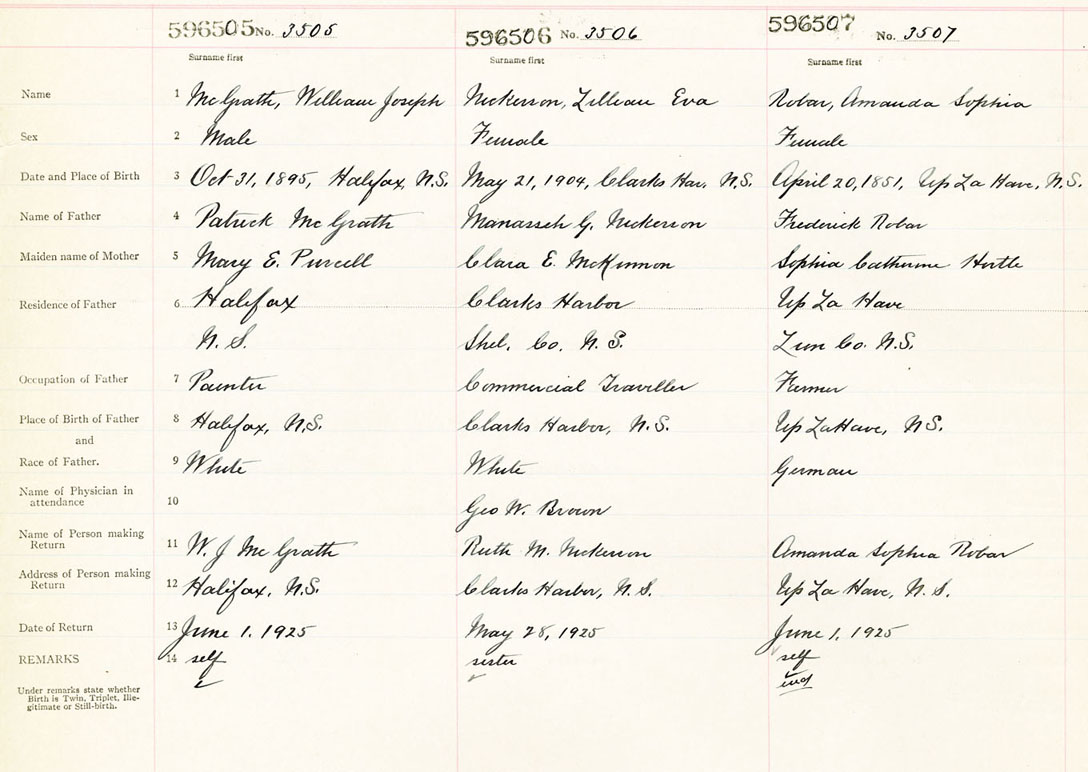 596505 No. 3505 596506 No. 3506 596507 No. 3507
Surname first Surname first Surname first
Name 1 McGrath, William Joseph Nickerson, Lillian Eva Robar, Amanda Sophia
Sex 2 Male Female Female
Date and Place of Birth 3 Oct 31, 1895, Halifax, N.S. May 21, 1904, Clarks Har. N.S. April 20, 1851, Up La Have, N.S.
Name of Father 4 Patrick McGrath Manasseh G. Nickerson Frederick Robar
Maiden name of Mother 5 Mary E. Purcell Clara E. McKinnon Sophia Catherine Hirtle
Residence of Father 6 Halifax Clarks Harbor Up La Have
N.S. Shel. Co. N.S. Lun Co. N.S.
Occupation of Father 7 Painter Commercial Traviller Farmer
Place of Birth of Father 8 Halifax, N.S. Clarks Harbor, N.S. Up LaHave, N.S.
and
Race of Father. 9 White White German
Name of Physician in
attendance 10 Geo W. Brown
Name of Person making
Return 11 W. J McGrath Ruth M. Nickerson Amanda Sophia Robar
Address of Person making
Return 12 Halifax, N.S. Clarks Harbor, N.S. Up La Have, N.S.
Date of Return 13 June 1. 1925 May 28, 1925 June 1, 1925
REMARKS 14 self sister self
Under remarks state whether
Birth is Twin, Triplet, Ille-
gitimate or Still-birth.